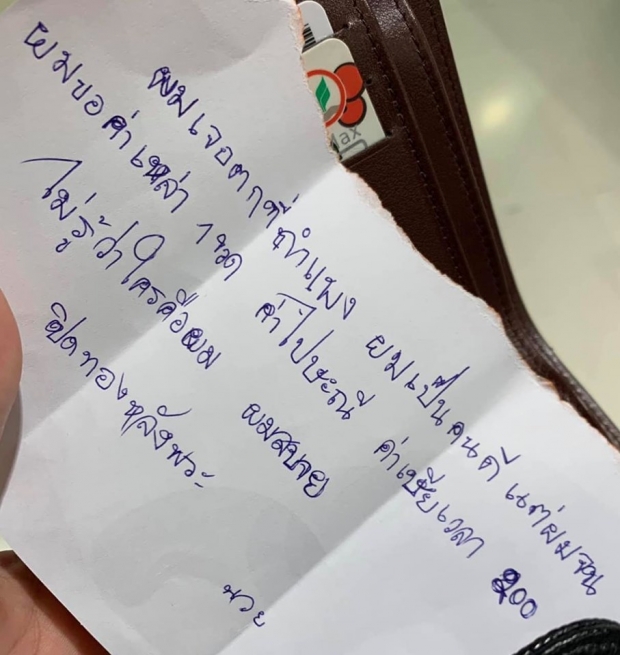 ผมเจอตกที่กำแพง ผมเป็นคนดี แต่ผมจน
ผมขอค่าเหล่า 1 ขวด ค่าไปษณี ค่าเซียเวลา 200
ไม่รู้ว่าใครคือผม ผมสบาย
ปิดทองหลังพระ
Max